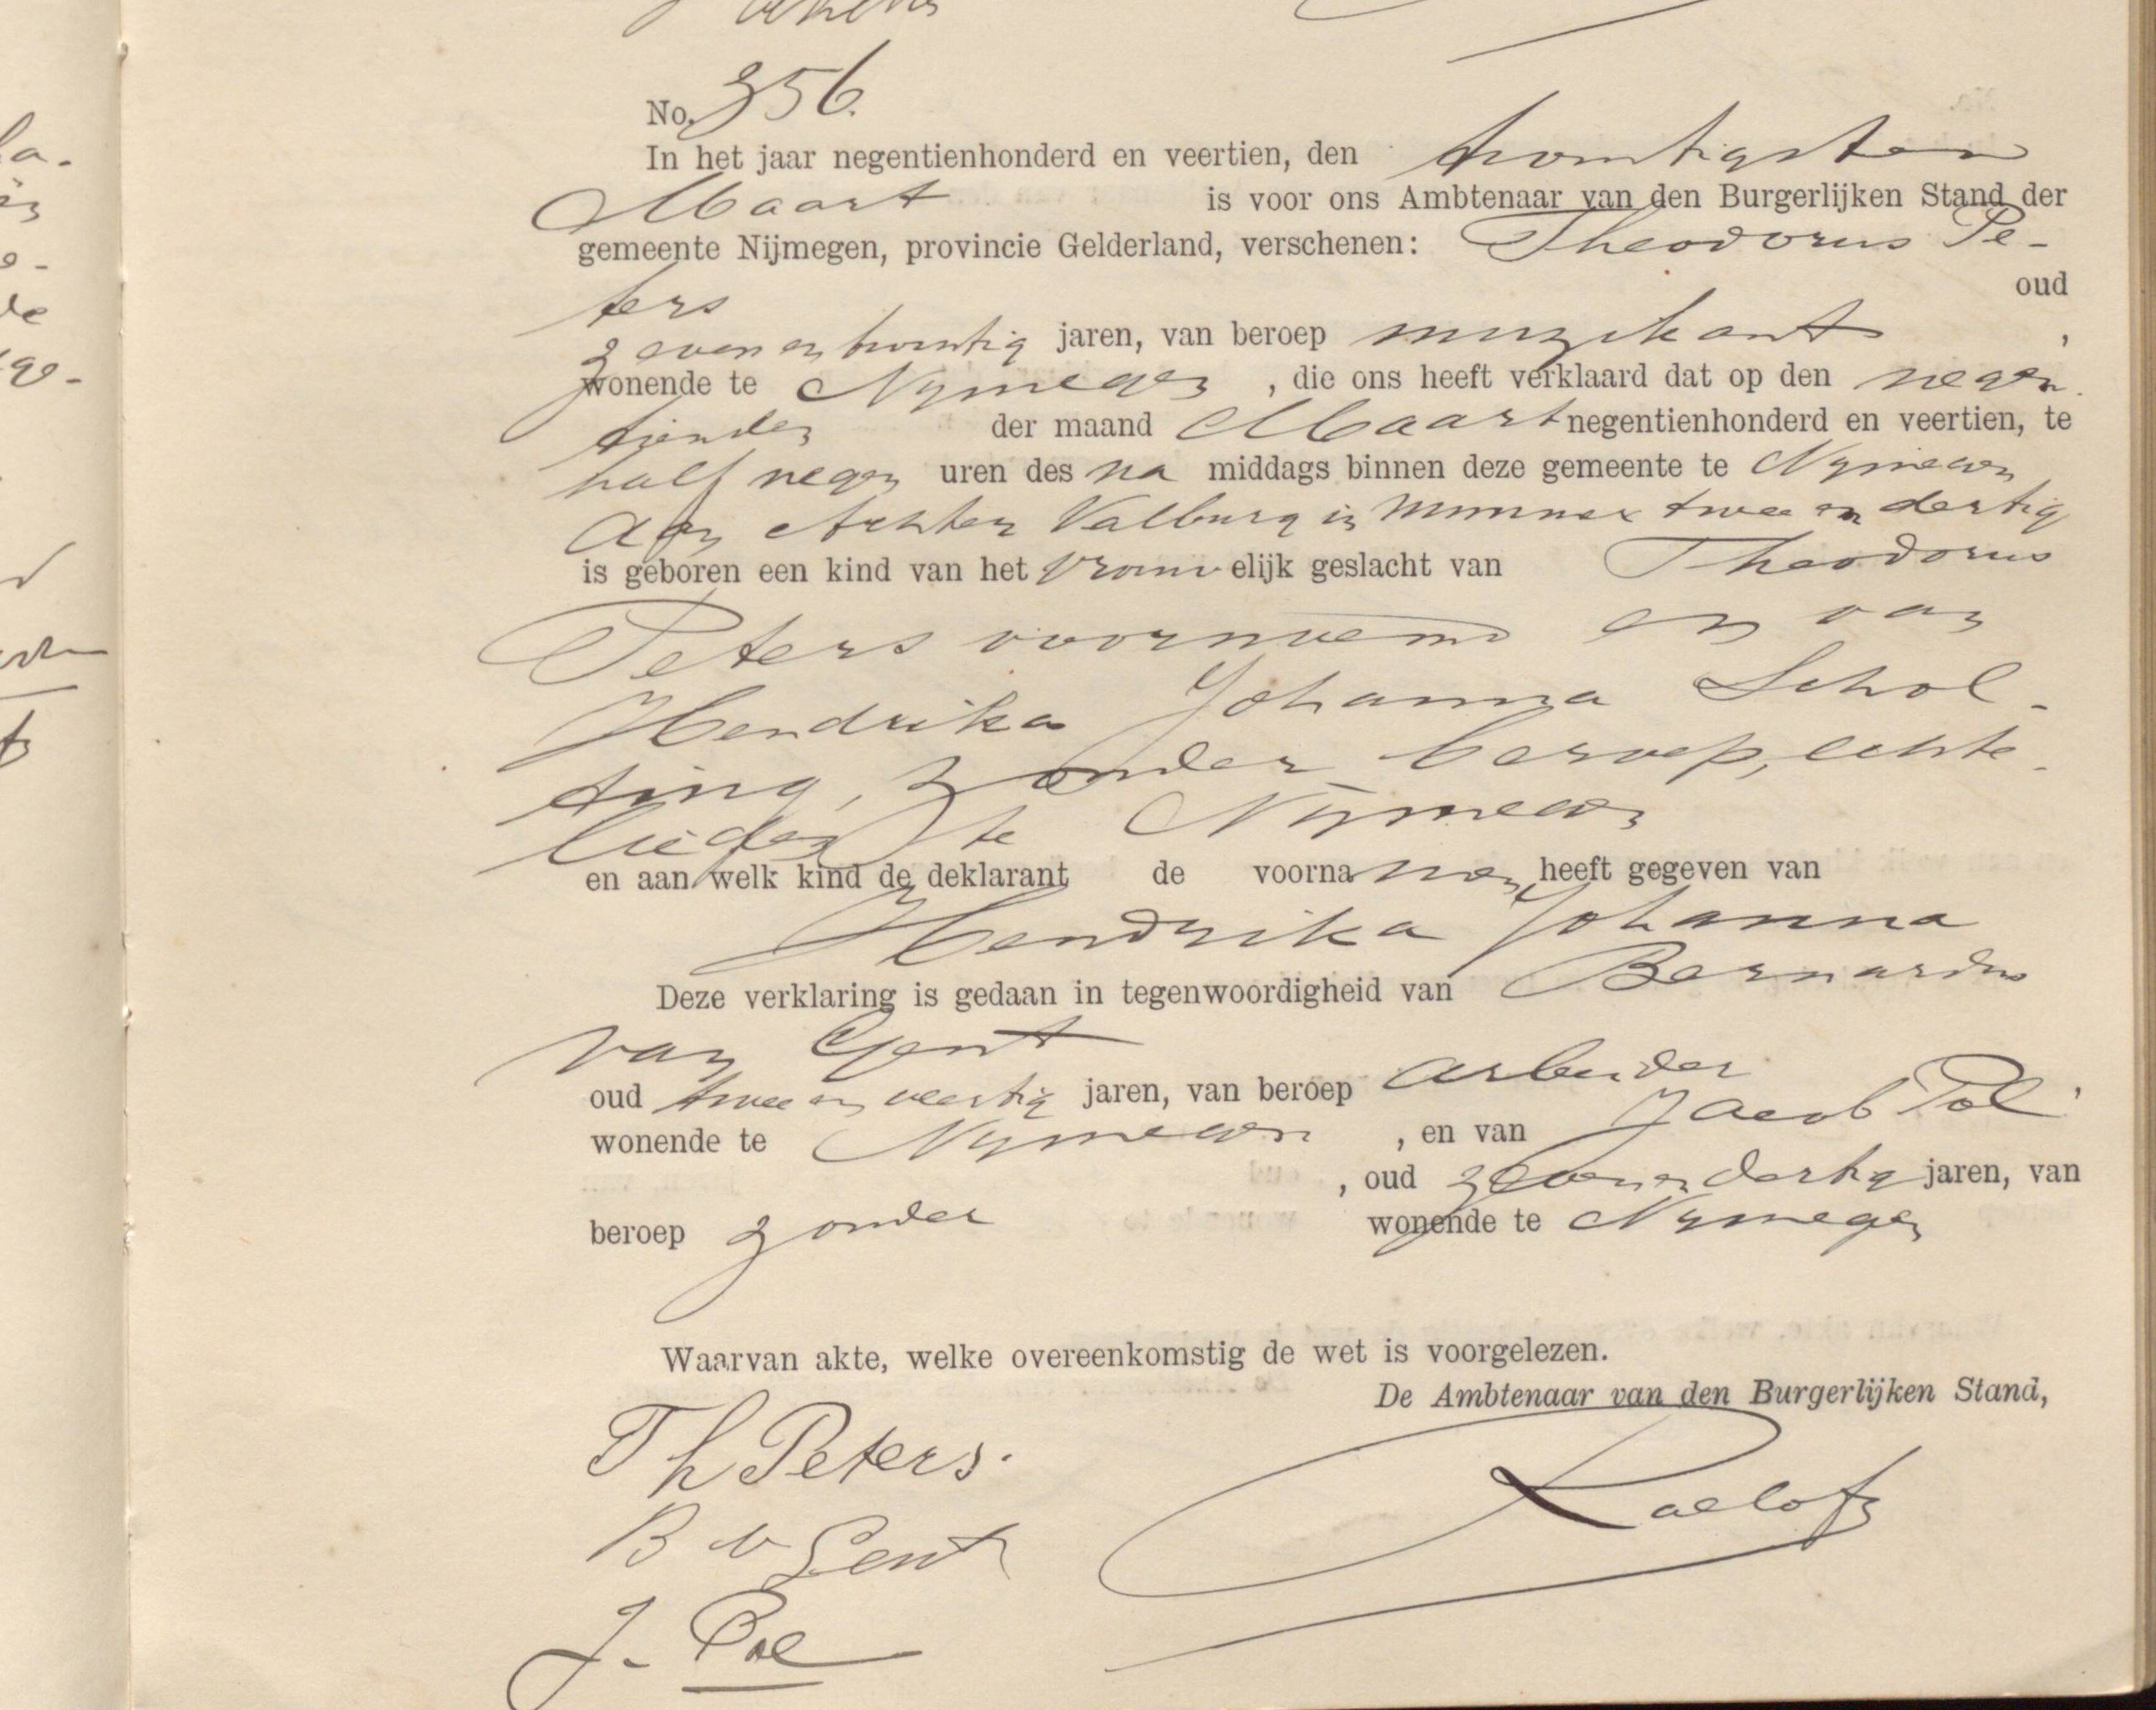 No. 356.
In het jaar negentienhonderd en veertien, den twintigsten
Maart is voor ons Ambtenaar van den Burgerlijken Stand der
gemeente Nijmegen, provincie Gelderland, verschenen: Theodorus Pe-
ters oud
zevenentwintig jaren, van beroep muzikant ,
wonende te Nymegen , die ons heeft verklaard dat op den negen
tienden der maand Maart negentienhonderd en veertien, te
half negen uren des na middags binnen deze gemeente te Nymegen
aan Achter Valburg in nummer twee en dertig
is geboren een kind van het vrouwelijk geslacht van Theodorus
Peters voornoemd en van
Hendrika Johanna Schol-
ting, zonder beroep, echte-
lieden te Nymegen
en aan welk kind de deklarant de voornamen heeft gegeven van
Hendrika Johanna
Deze verklaring is gedaan in tegenwoordigheid van Bernardus
van Gent
oud twee en veertig jaren, van beroep arbeider ,
wonende te Nymegen , en van Jacob Pol
, oud zevenendertig jaren, van
beroep zonder wonende te Nymegen
Waarvan akte, welke overeenkomstig de wet is voorgelezen.
De Ambtenaar van den Burgerlijken Stand,
Th Peters.
Roelofs
B v Gent
J. Pol